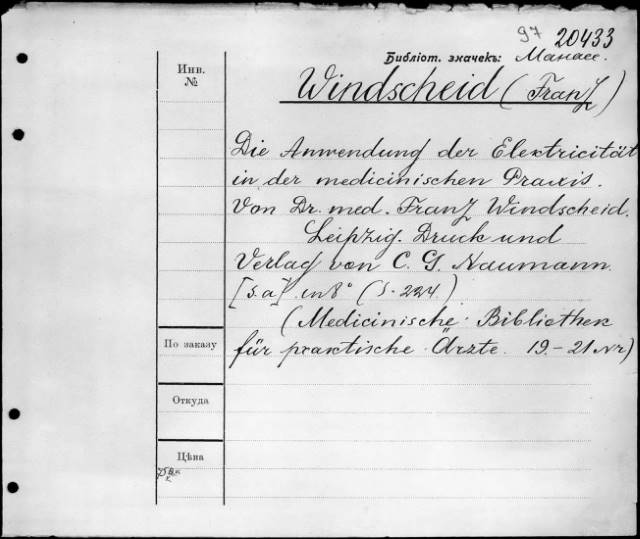 97 20433
Библіот. значекъ: Манасе.
Инв.
№
Windscheid (Franz)
Die Anwendung der Elektricität
in der medicinischen Praxis.
Von Dr. med. Franz Windscheid.
Leipzig. Druck und
Verlag von C. G. Naumann.
[s. a] in 8° (S. 224)
(Medicinische Bibliothek
für praktische Ärzte. 19-21 Nr)
По заказу
Откуда
Цѣна